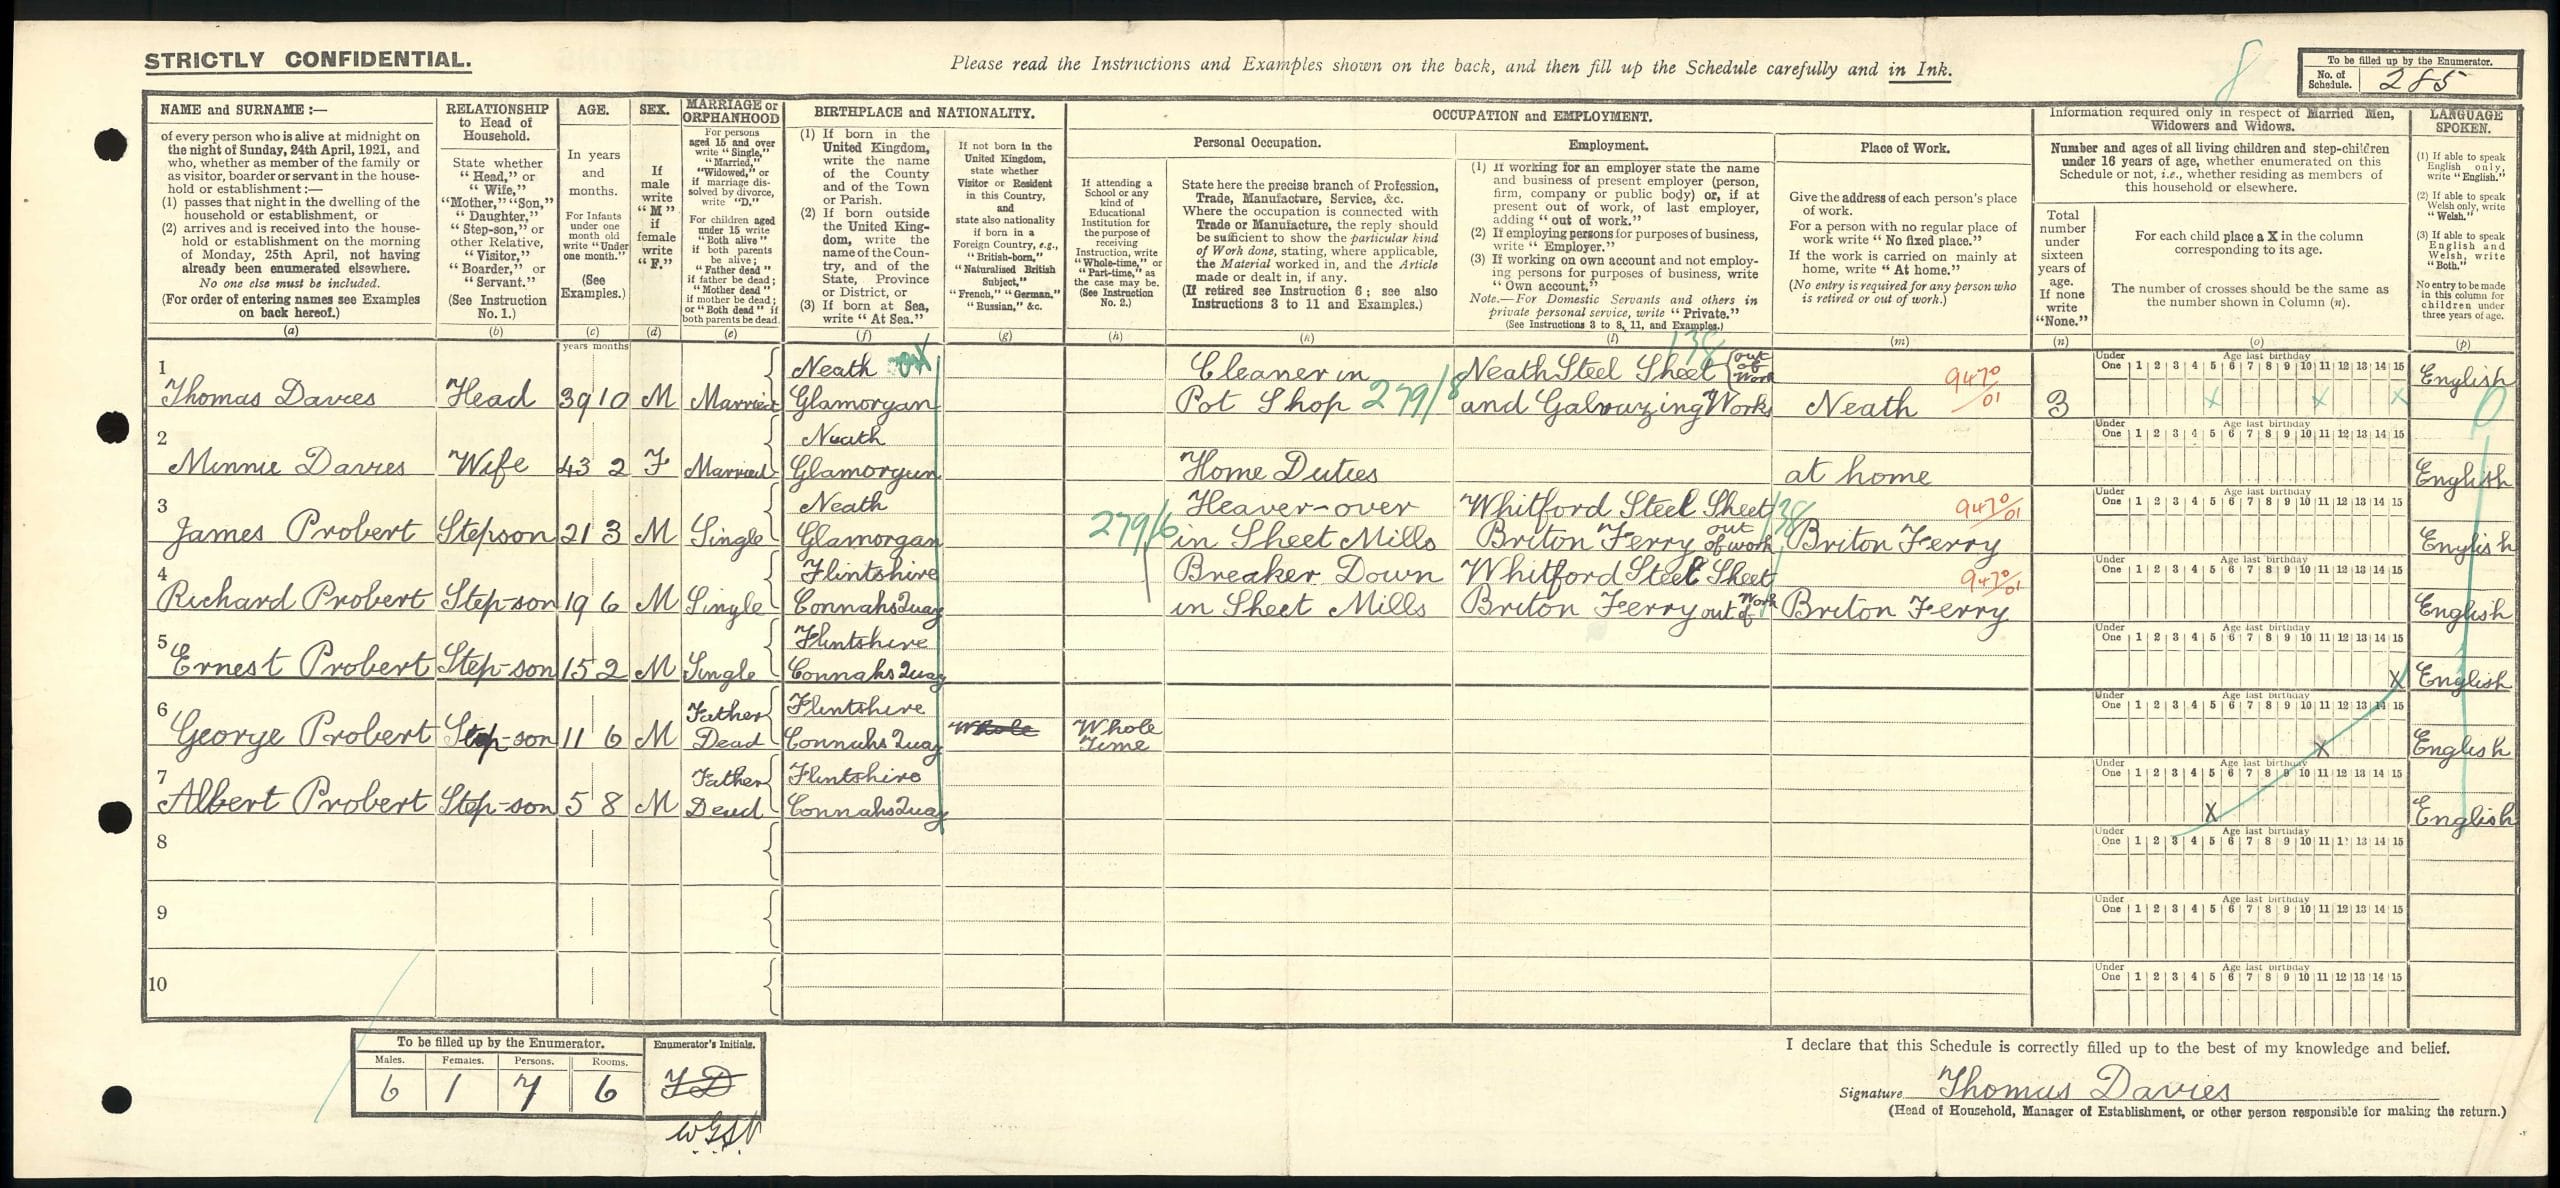 STRICTLY CONFIDENTIAL.
Please read the Instructions and Examples shown on the back, and then fill up the Schedule carefully and in Ink.
8
To be filled up by the Enumerator.
No. of Schedule. 285
NAME and SURNAME :—
of every person who is alive at midnight on
the night of Sunday, 24th April, 1921, and
who, whether as member of the family or
as visitor, boarder or servant in the house-
hold or establishment :—
(1) passes that night in the dwelling of the
household or establishment, or
(2) arrives and is received into the house-
hold or establishment on the morning
of Monday, 25th April, not having
already been enumerated elsewhere.
No one else must be included.
(For order of entering names see Examples
on back hereof.)
(a)
RELATIONSHIP
to Head of
Household.
State whether
"Head," or
"Wife,"
"Mother," "Son,"
"Daughter,"
"Step-son," or
other Relative,
"Visitor,"
"Boarder," or
"Servant."
(See Instruction
No. 1.)
(b)
AGE.
In years
and
months.
For Infants
under one
month old
write "Under
one month."
(See
Examples.)
(c)
SEX.
If
male
write
"M"
if
female
write
"F."
(d)
MARRIAGE or
ORPHANHOOD
For persons
aged 15 and over
write "Single,"
"Married,"
"Widowed," or
if marriage dis-
solved by divorce,
write "D."
For children aged
under 15 write
"Both alive"
if both parents
be alive;
"Father dead"
if father be dead;
"Mother dead"
if mother be dead;
or "Both dead" if
both parents be dead.
(e)
BIRTHPLACE and NATIONALITY.
(1) If born in the
United Kingdom,
write the name
of the County
and of the Town
or Parish.
(2) If born outside
the United King-
dom, write the
name of the Coun-
try, and of the
State, Province
or District, or
(3) If born at Sea,
write "At Sea."
(f)
If not born in the
United Kingdom,
state whether
Visitor or Resident
in this Country,
and
state also nationality
if born in a
Foreign Country, e.g.,
"British-born,"
"Naturalised British
Subject,"
"French," "German,"
"Russian," &c.
(g)
OCCUPATION and EMPLOYMENT.
If attending a
School or any
kind of
Educational
Institution for
the purpose of
receiving
Instruction, write
"Whole-time," or
"Part-time," as
the case may be.
(See Instruction
No. 2.)
(h)
Personal Occupation.
State here the precise branch of Profession,
Trade, Manufacture, Service, &c.
Where the occupation is connected with
Trade or Manufacture, the reply should
be sufficient to show the particular kind
of Work done, stating, where applicable,
the Material worked in, and the Article
made or dealt in, if any.
(If retired see Instruction 6; see also
Instructions 3 to 11 and Examples.)
(k)
Employment.
(1) If working for an employer state the name
and business of present employer (person,
firm, company or public body) or, if at
present out of work, of last employer,
adding "out of work."
(2) If employing persons for purposes of business,
write "Employer."
(3) If working on own account and not employ-
ing persons for purposes of business, write
"Own account."
Note.—For Domestic Servants and others in
private personal service, write "Private."
(See Instructions 3 to 8, 11, and Examples.)
(l)
Place of Work.
Give the address of each person's place
of work.
For a person with no regular place of
work write "No fixed place."
If the work is carried on mainly at
home, write "At home."
(No entry is required for any person who
is retired or out of work.)
(m)
Information required only in respect of Married Men,
Widowers and Widows.
Number and ages of all living children and step-children
under 16 years of age, whether enumerated on this
Schedule or not, i.e., whether residing as members of
this household or elsewhere.
Total
number
under
sixteen
years of
age.
If none
write
"None."
(n)
For each child place a X in the column
corresponding to its age.
The number of crosses should be the same as
the number shown in Column (n).
(o)
LANGUAGE
SPOKEN.
(1) If able to speak
English only,
write "English."
(2) If able to speak
Welsh only, write
"Welsh."
(3) If able to speak
English and
Welsh, write
"Both."
No entry to be made
in this column for
children under
three years of age.
(p)
years months
Under One 1 2 3 4 5 6 7 8 9 10 11 12 13 14 15
Age last birthday
1 Thomas Davies Head 39 10 M Married Neath Glamorgan
Cleaner in Pot Shop 279/8 Neath Steel Sheet and Galvazing Works out of Work 138 Neath 9470/01 3 X X X English
2 Minnie Davies Wife 43 2 F Married Neath Glamorgan
Home Duties at home English
3 James Probert Stepson 21 3 M Single Neath Glamorgan
279/6 Heaver-over in Sheet Mills Whitford Steel Sheet Briton Ferry out of work 138 Briton Ferry 9470/01 English
4 Richard Probert Step-son 19 6 M Single Flintshire Connahs Quay
Breaker Down in Sheet Mills Whitford Steel Sheet Briton Ferry out of Work Briton Ferry 9470/01 English
5 Ernest Probert Step-son 15 2 M Single Flintshire Connahs Quay X English
6 George Probert Step-son 11 6 M Father Dead Flintshire Connahs Quay Whole Whole Time X English
7 Albert Probert Step-son 5 8 M Father Dead Flintshire Connahs Quay X English
8
9
10
To be filled up by the Enumerator.
Males. Females. Persons. Rooms.
6 1 7 6
Enumerator's Initials.
I declare that this Schedule is correctly filled up to the best of my knowledge and belief.
Signature Thomas Davies
(Head of Household, Manager of Establishment, or other person responsible for making the return.)